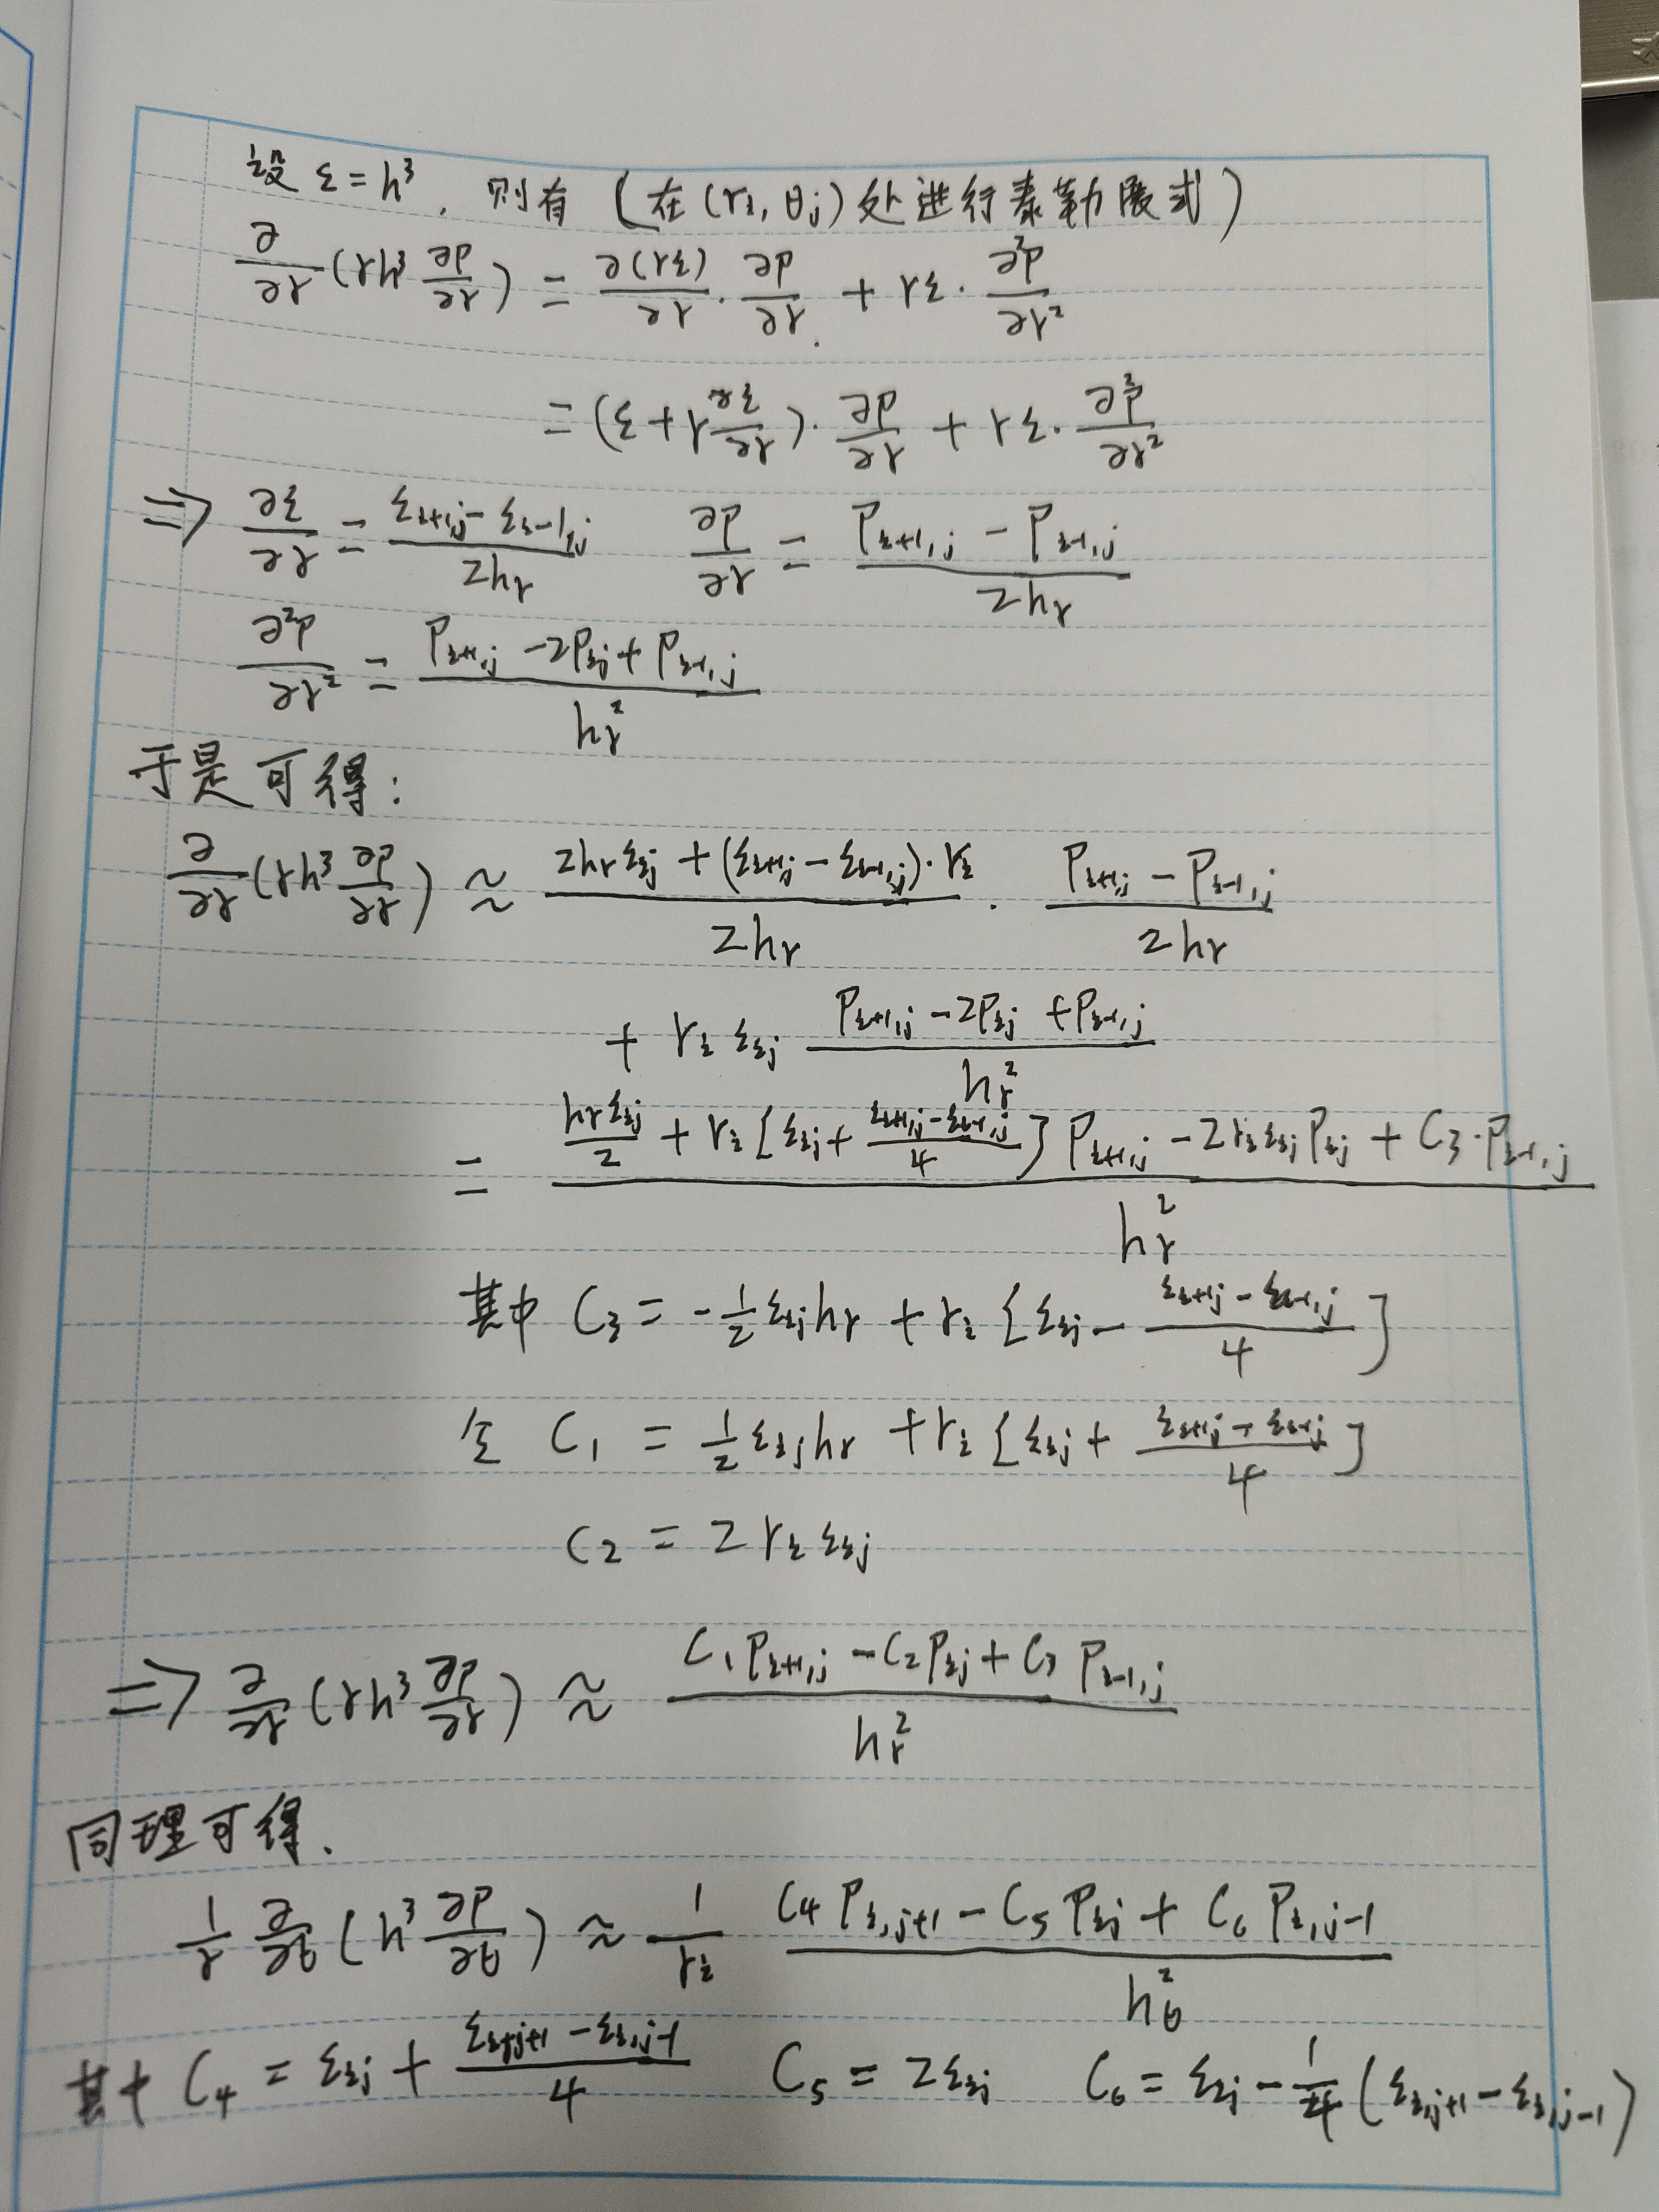 设 ε = h³, 则有 (在(rᵢ, θⱼ)处进行泰勒展式)
∂/∂r (rh³ ∂p/∂r) = ∂(rε)/∂r · ∂p/∂r + rε · ∂²p/∂r²
= (ε + r ∂ε/∂r) · ∂p/∂r + rε · ∂²p/∂r²
⇒ ∂ε/∂r = (ε_{i+1,j} - ε_{i-1,j})/2h_r ∂p/∂r = (P_{i+1,j} - P_{i-1,j})/2h_r
∂²p/∂r² = (P_{i+1,j} - 2P_{ij} + P_{i-1,j})/h_r²
于是可得:
∂/∂r (rh³ ∂p/∂r) ≈ (2h_r ε_{ij} + (ε_{i+1,j} - ε_{i-1,j}) · r_i)/2h_r · (P_{i+1,j} - P_{i-1,j})/2h_r
+ r_i ε_{ij} (P_{i+1,j} - 2P_{ij} + P_{i-1,j})/h_r²
= (h_r ε_{ij}/2 + r_i [ε_{ij} + (ε_{i+1,j} - ε_{i-1,j})/4] P_{i+1,j} - 2r_i ε_{ij} P_{ij} + C₃ · P_{i-1,j})/h_r²
其中 C₃ = -1/2 ε_{ij} h_r + r_i [ε_{ij} - (ε_{i+1,j} - ε_{i-1,j})/4]
令 C₁ = 1/2 ε_{ij} h_r + r_i [ε_{ij} + (ε_{i+1,j} - ε_{i-1,j})/4]
C₂ = 2 r_i ε_{ij}
⇒ ∂/∂r (rh³ ∂p/∂r) ≈ (C₁ P_{i+1,j} - C₂ P_{ij} + C₃ P_{i-1,j})/h_r²
同理可得.
1/r ∂/∂θ (h³ ∂p/∂θ) ≈ 1/r_i (C₄ P_{i,j+1} - C₅ P_{ij} + C₆ P_{i,j-1})/h_θ²
其中 C₄ = ε_{ij} + (ε_{i,j+1} - ε_{i,j-1})/4 C₅ = 2ε_{ij} C₆ = ε_{ij} - 1/4 (ε_{i,j+1} - ε_{i,j-1})